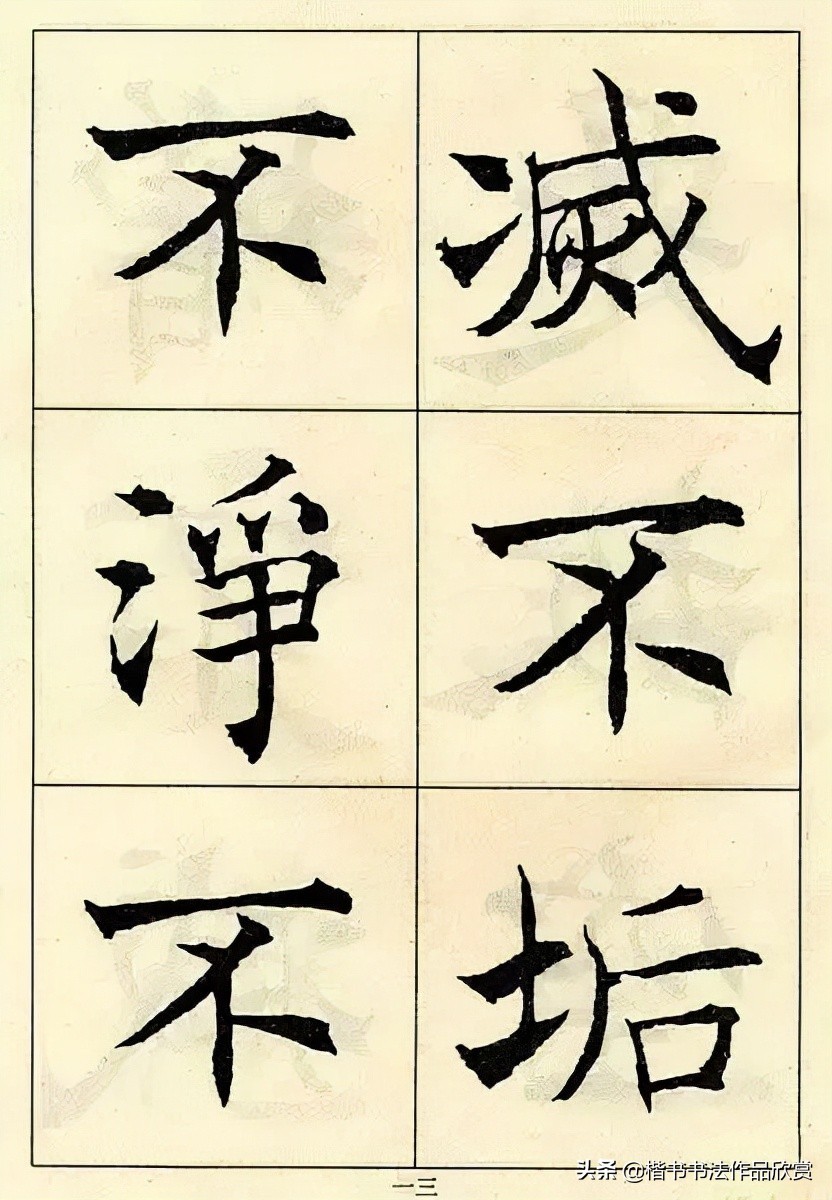 滅不垢
不淨不
一三
头条 @楷书书法作品欣赏